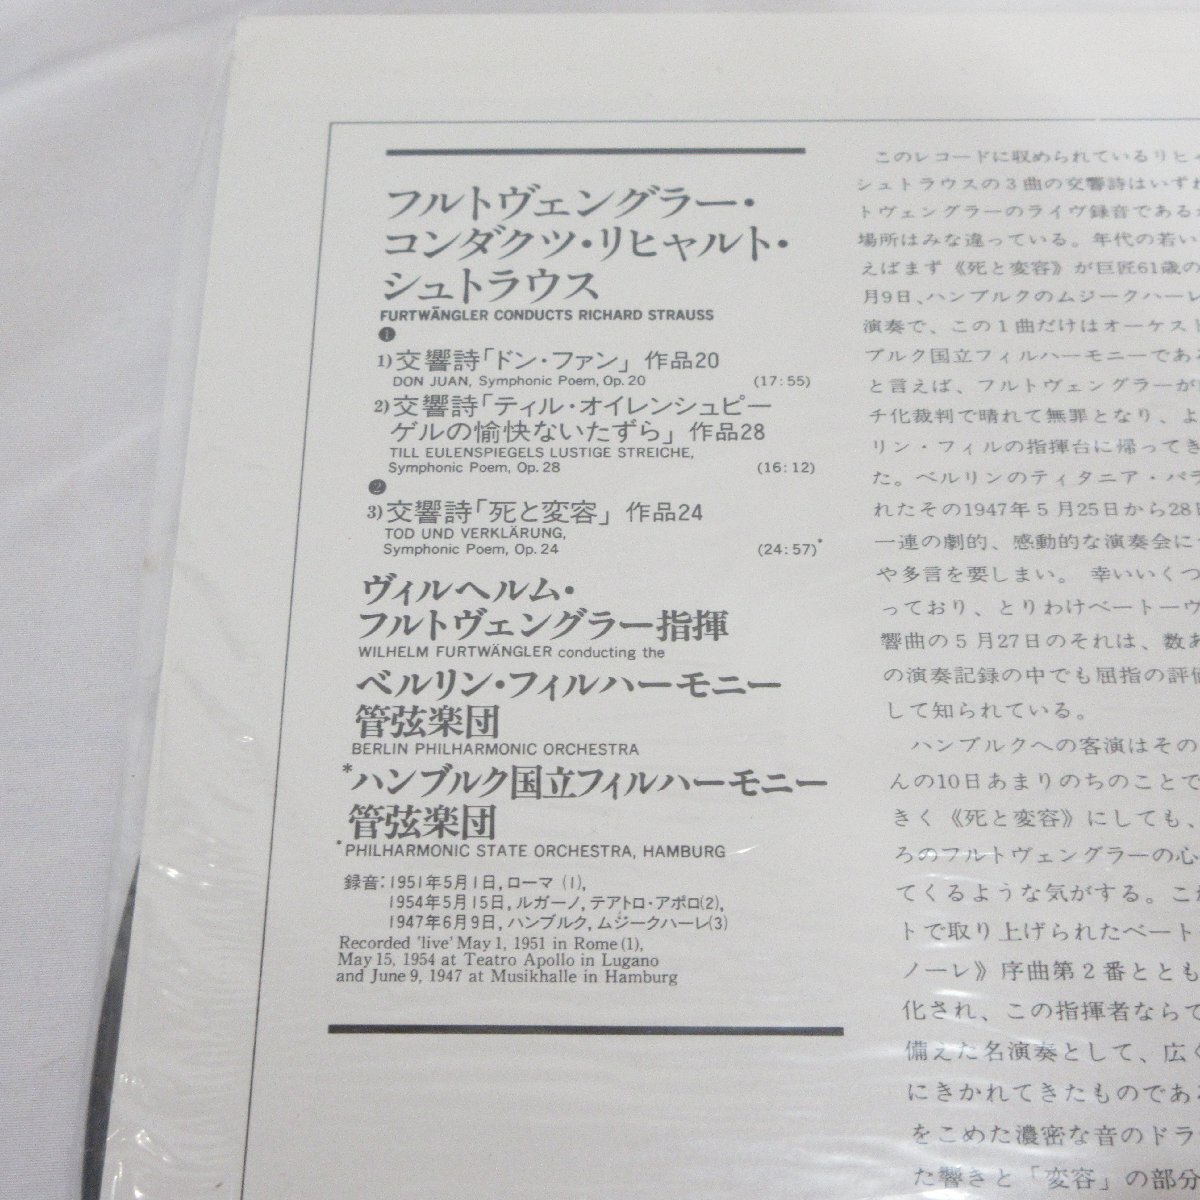 フルトヴェングラー・
コンダクツ・リヒャルト・
シュトラウス
FURTWÄNGLER CONDUCTS RICHARD STRAUSS
❶
1)交響詩「ドン・ファン」 作品20
DON JUAN, Symphonic Poem, Op. 20 (17:55)
2)交響詩「ティル・オイレンシュピー
ゲルの愉快ないたずら」 作品28
TILL EULENSPIEGELS LUSTIGE STREICHE,
Symphonic Poem, Op. 28 (16:12)
❷
3)交響詩「死と変容」 作品24
TOD UND VERKLÄRUNG,
Symphonic Poem, Op. 24 (24:57)*
ヴィルヘルム・
フルトヴェングラー指揮
WILHELM FURTWÄNGLER conducting the
ベルリン・フィルハーモニー
管弦楽団
BERLIN PHILHARMONIC ORCHESTRA
*ハンブルク国立フィルハーモニー
管弦楽団
*PHILHARMONIC STATE ORCHESTRA, HAMBURG
録音:1951年5月1日, ローマ (1),
1954年5月15日, ルガーノ, テアトロ・アポロ(2),
1947年6月9日, ハンブルク, ムジークハーレ(3)
Recorded 'live' May 1, 1951 in Rome (1),
May 15, 1954 at Teatro Apollo in Lugano
and June 9, 1947 at Musikhalle in Hamburg
このレコードに収められているリヒャ
シュトラウスの3曲の交響詩はいずれ
トヴェングラーのライヴ録音である
場所はみな違っている。年代の若い
えばまず《死と変容》が巨匠61歳の
月9日、ハンブルクのムジークハーレ
演奏で、この1曲だけはオーケスト
ブルク国立フィルハーモニーである
と言えば、フルトヴェングラーが
チ化裁判で晴れて無罪となり、よ
リン・フィルの指揮台に帰ってき
た。ベルリンのティタニア・パラ
れたその1947年5月25日から28日
一連の劇的、感動的な演奏会に
や多言を要しまい。 幸いいくつ
っており、とりわけベートーヴ
響曲の5月27日のそれは、数あ
の演奏記録の中でも屈指の評価
して知られている。
ハンブルクへの客演はその
んの10日あまりのちのことで
きく《死と変容》にしても、
ろのフルトヴェングラーの心
てくるような気がする。これ
トで取り上げられたベート
ノーレ》序曲第2番ととも
化され、この指揮者ならで
備えた名演奏として、広く
にきかれてきたものである
をこめた濃密な音のドラ
た響きと「変容」の部分